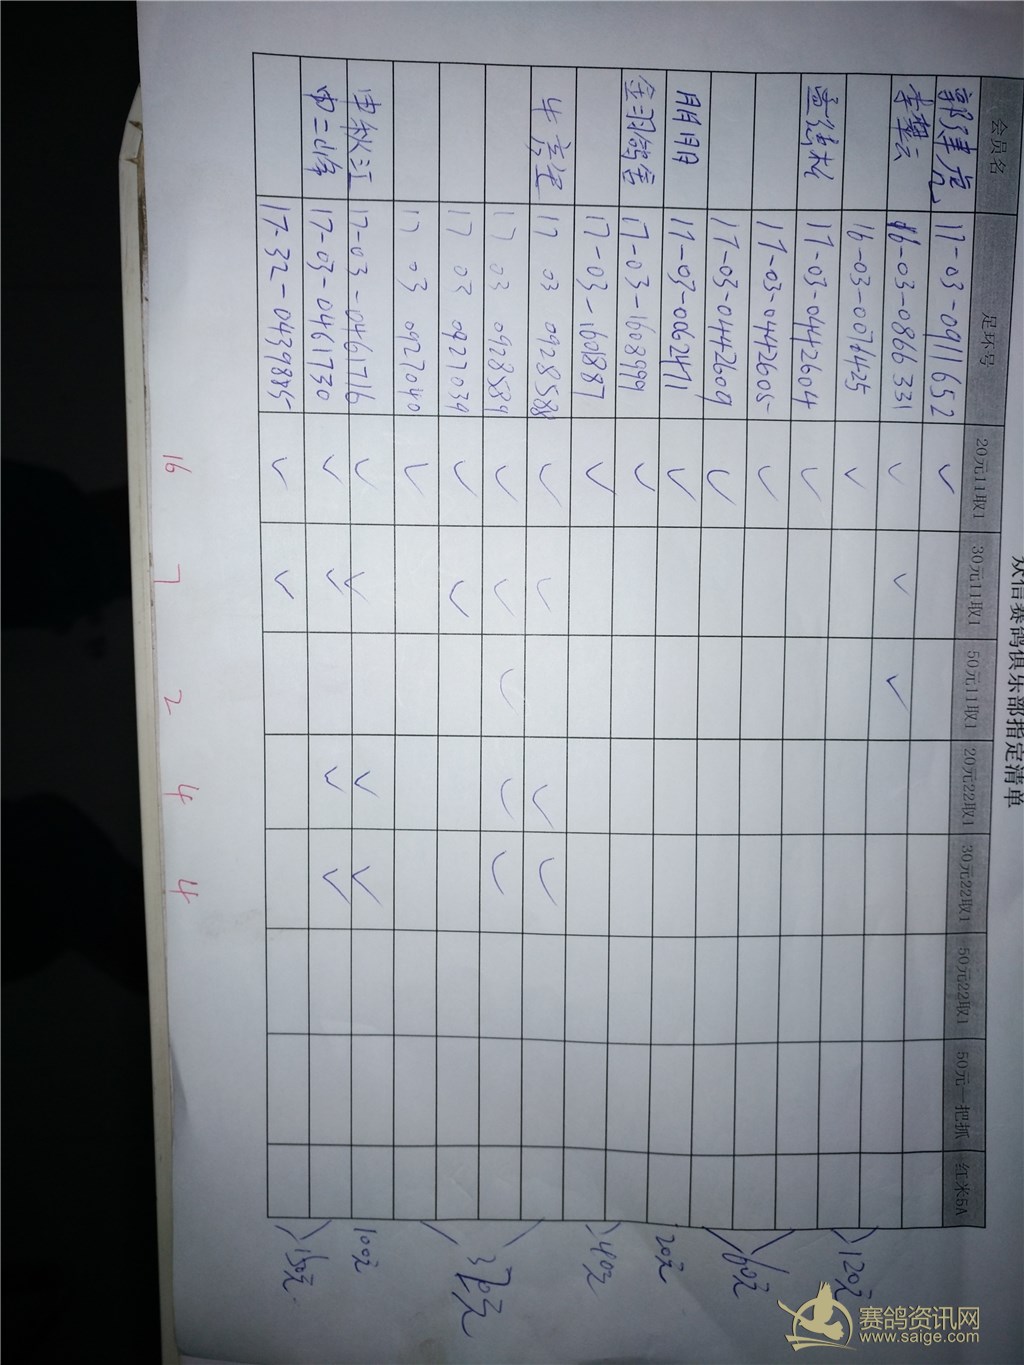 众信赛鸽俱乐部指定清单
会员名 足环号 20元11取1 30元11取1 50元11取1 20元22取1 30元22取1 50元22取1 50元一把抓 红米5A
17-03-0911652 ✓
16-03-0866331 ✓ ✓ ✓
16-03-0076425 ✓
17-03-0442604 ✓
17-03-0442605 ✓
17-03-0442609 ✓
明明 17-03-0062471 ✓
金羽鸽舍 17-03-1608999 ✓
17-03-160887 ✓
17 03 0928588 ✓ ✓ ✓ ✓
17 03 0928589 ✓ ✓ ✓ ✓ ✓
17 03 0927039 ✓ ✓
17 03 0927040 ✓
申秋江 17-03-0461716 ✓ ✓ ✓ ✓
申二峰 17-03-0461730 ✓ ✓ ✓ ✓
17-32-0439885 ✓ ✓
16 7 2 4 4
120元
60元
20元
40元
370元
100元
150元
赛鸽资讯网
www.saige.com